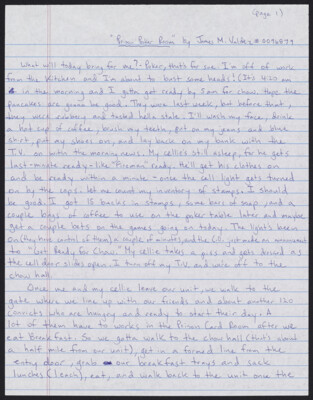 (page 1)
"Prison Poker Room" by James M. Valdez #
What will today bring for me? - Poker, that's for sure. I'm off of work
from the kitchen and I'm about to bust some heads! (It's 4:20 am
in the morning and I gotta get ready by 5am for chow. Hope the
pancakes are gonna be good. They were last week, but before that,
they were rubbery and tasted hella stale. I'll wash my face, drink
a hot cup of coffee, brush my teeth, put on my jeans and blue
shirt, put my shoes on, and lay back on my bunk with the
T.V. on with the morning news. My cellie's still asleep, for he gets
last-minute ready - like "Fireman" ready. He'll get his clothes on
and be ready within a minute - once the cell light gets turned
on by the cops. Let me count my inventory of stamps. I should
be good. I got 18 books in stamps, some bars of soap, and a
couple bags of coffee to use on the poker table later and maybe
get a couple bets on the games going on today. The light's been
on (they have control of them) a couple of minutes, and the C.O. just made an announcement
to "Get Ready for Chow." My cellie takes a piss and gets dressed as
the cell door slides open. I turn off my T.V. and walk off to the
chow hall.
Once me and my cellie leave our unit, we walk to the
gate where we line up with our friends and about another 120
convicts who are hungry and ready to start their day. A
lot of them have to work in the Prison Card Room after we
eat breakfast. So we gotta walk to the chow hall (that's about
a half mile from our unit), get in a formed line from the
entry door, grab our breakfast trays and sack
lunches (1 each), eat, and walk back to the unit once the